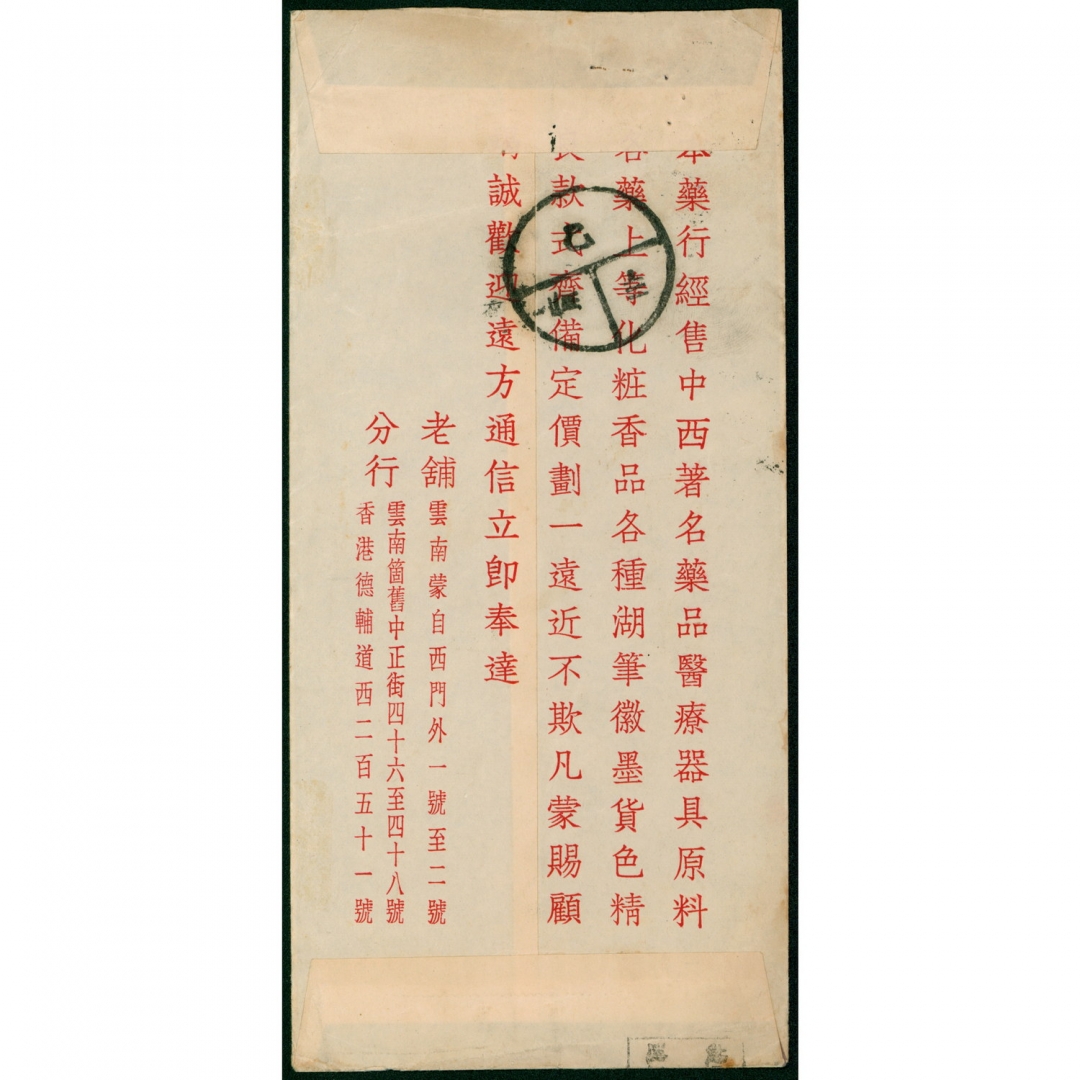 本藥行經售中西著名藥品醫療器具原料
名藥上等化粧香品各種湖筆徽墨貨色精
良款式齊備定價劃一遠近不欺凡蒙賜顧
誠歡迎遠方通信立即奉達
老舖
雲南蒙自西門外一號至二號
分行
雲南箇舊中正街四十六至四十八號
香港德輔道西二百五十一號